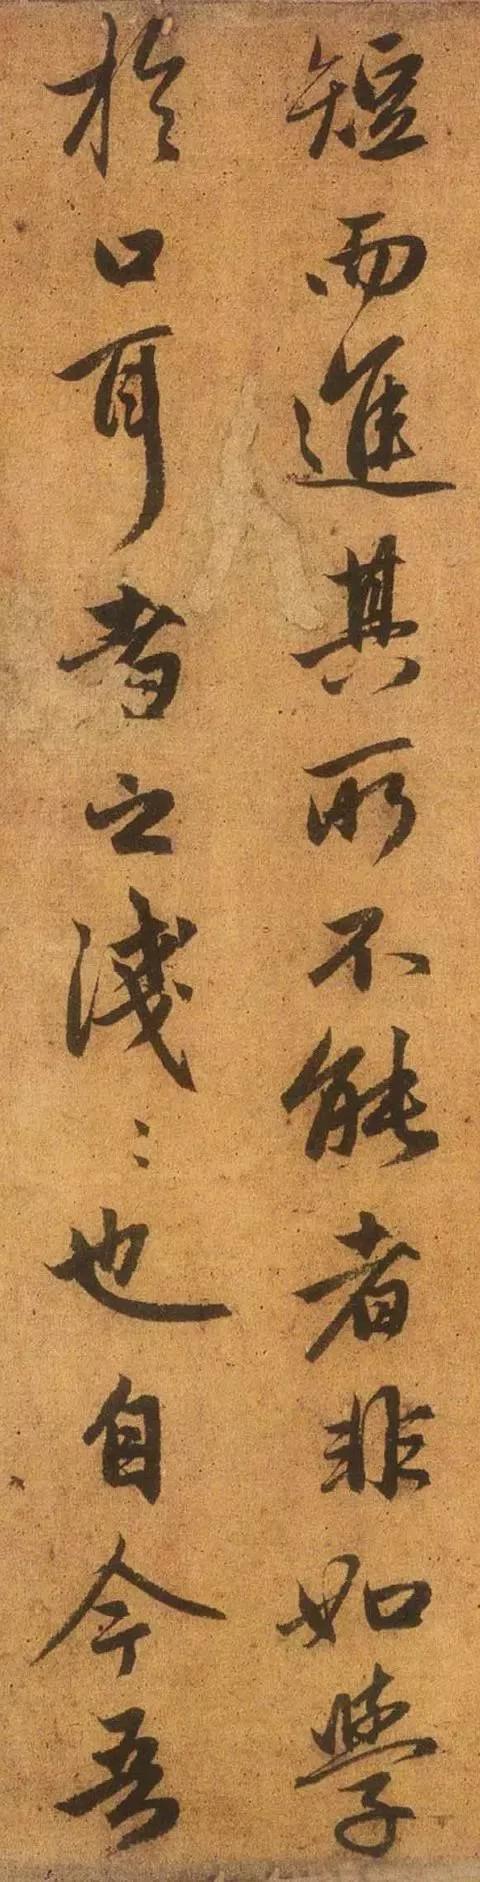 短而進其所不能者非如學
於口耳者之淺〻也自今吾